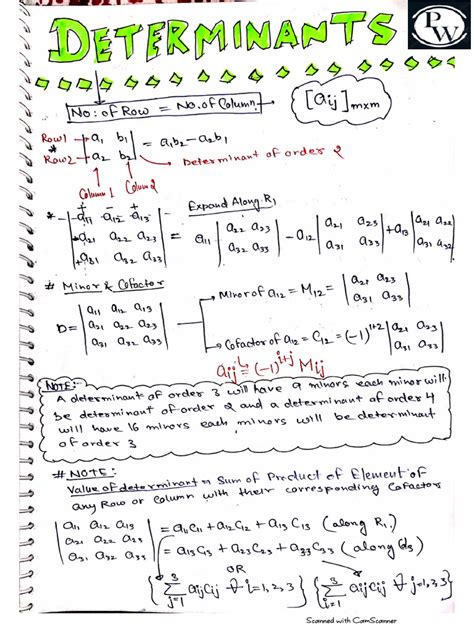 DETERMINANTS
PW
No: of Row = No. of Column
[aij]m×m
Row1 → | a1 b1 | = a1b2 − a2b1
Row2 → | a2 b2 | → Determinant of order 2
Column 1 Column 2
Expand Along R1
| a11 a12 a13 |
| a21 a22 a23 | = a11 | a22 a23 | − a12 | a21 a23 | + a13 | a21 a22 |
| a31 a32 a33 | | a32 a33 | | a31 a33 | | a31 a32 |
# Minor & Cofactor
D = | a11 a12 a13 |
| a21 a22 a23 |
| a31 a32 a33 |
→ Minor of a12 = M12 = | a21 a23 |
| a31 a33 |
→ Cofactor of a12 = C12 = (−1)^1+2 | a21 a23 |
| a31 a33 |
(−1)^i+j Mij
NOTE:
A determinant of order 3 will have 9 minors each minor will
be determinant of order 2 and a determinant of order 4
will have 16 minors each minors will be determinant
of order 3
# NOTE:
Value of determinant → Sum of Product of Element of
any Row or Column with their corresponding Cofactors
| a11 a12 a13 | = a11C11 + a12C12 + a13C13 (along R1)
| a21 a22 a23 |
| a31 a32 a33 | = a13C13 + a23C23 + a33C33 (along C3)
OR
{ 3 Σ j=1 aijCij ∀ i=1,2,3 } { 3 Σ i=1 aijCij ∀ j=1,2,3 }
Scanned with CamScanner